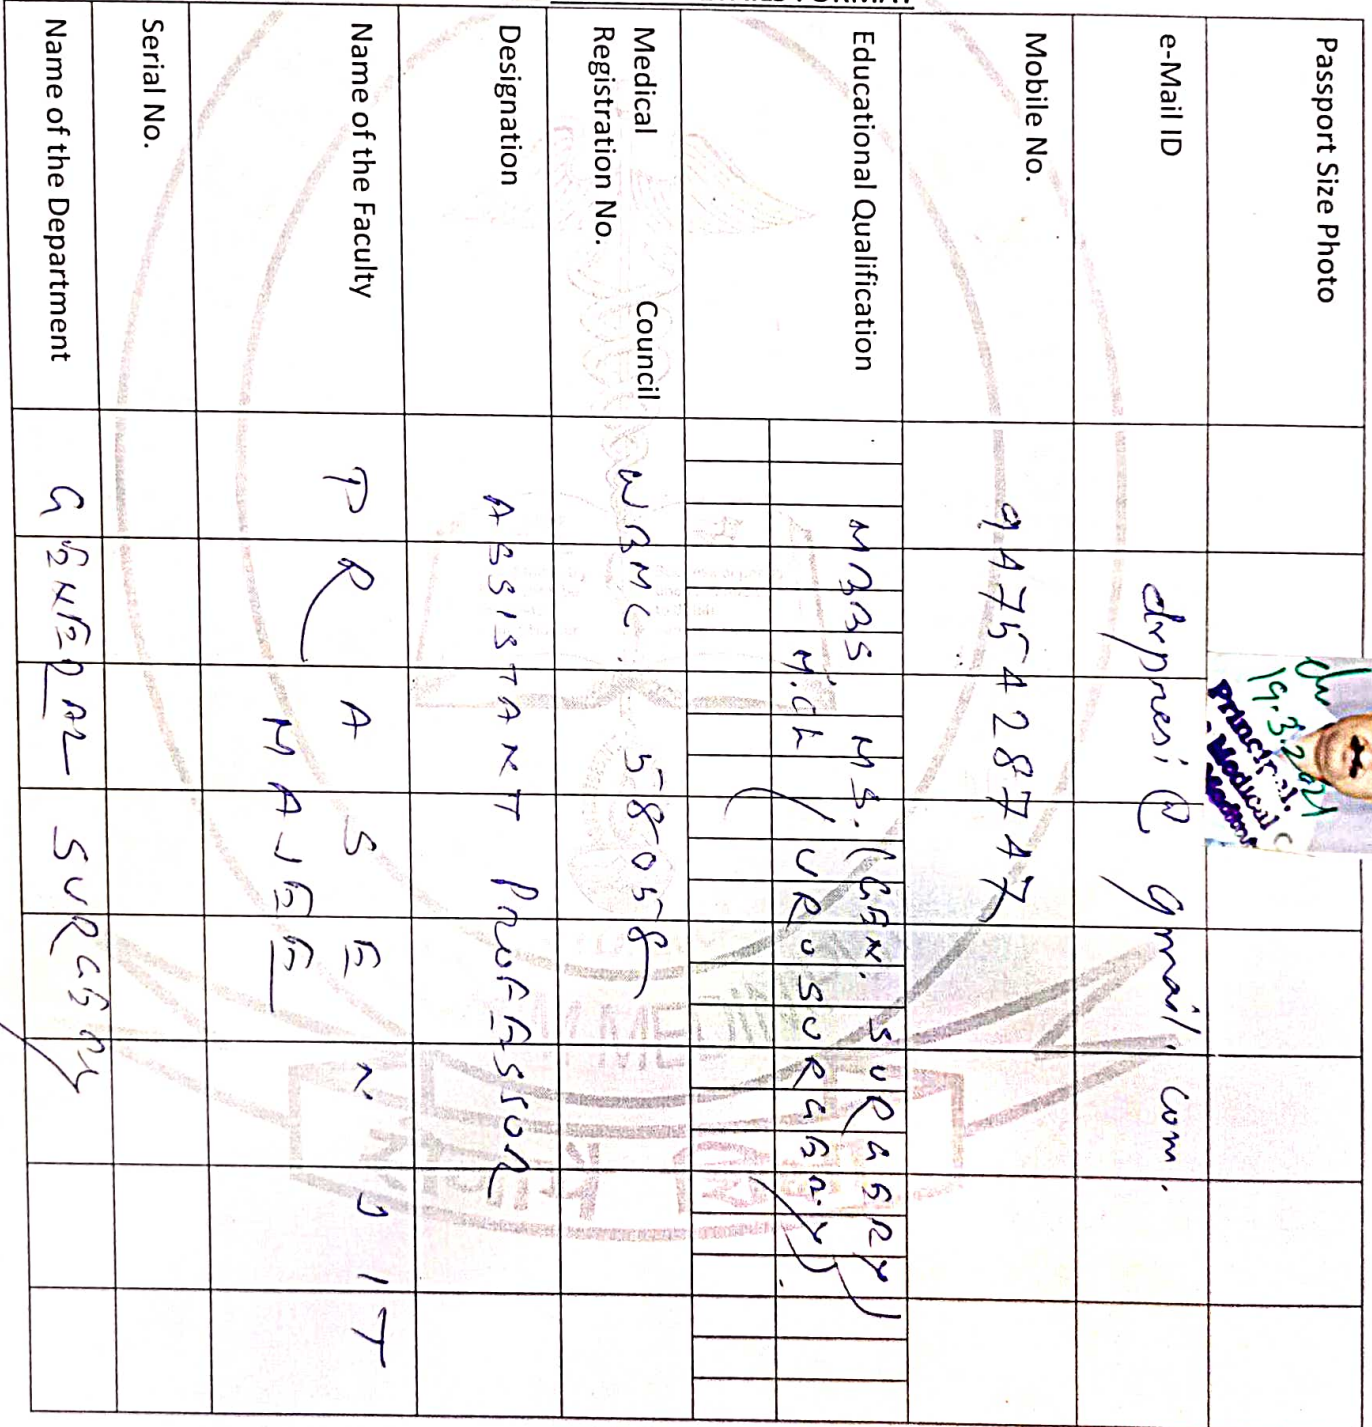 FORMAT
Name of the Department GENERAL SURGERY
Serial No.
Name of the Faculty PRASENJIT
MAJEE
Designation ASSISTANT PROFESSOR
Medical Council
Registration No. WBMC. 58058
Educational Qualification MBBS M.S. (GEN. SURGERY)
M.Ch (UROSURGERY)
Mobile No. 9475428747
e-Mail ID drpresi@gmail.com.
Passport Size Photo
19.3.2021
Principal.
Medical